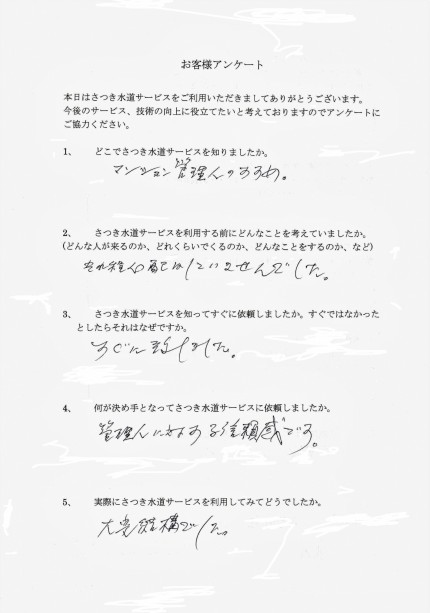 お客様アンケート
本日はさつき水道サービスをご利用いただきましてありがとうございます。
今後のサービス、技術の向上に役立てたいと考えておりますのでアンケートに
ご協力ください。
1、 どこでさつき水道サービスを知りましたか。
マンション管理人のすすめ。
2、 さつき水道サービスを利用する前にどんなことを考えていましたか。
(どんな人が来るのか、どれくらいでくるのか、どんなことをするのか、など)
していませんでした。
3、 さつき水道サービスを知ってすぐに依頼しましたか。すぐではなかった
としたらそれはなぜですか。
すぐに しました。
4、 何が決め手となってさつき水道サービスに依頼しましたか。
管理人に対する信頼感です。
5、 実際にさつき水道サービスを利用してみてどうでしたか。
大変結構でした。